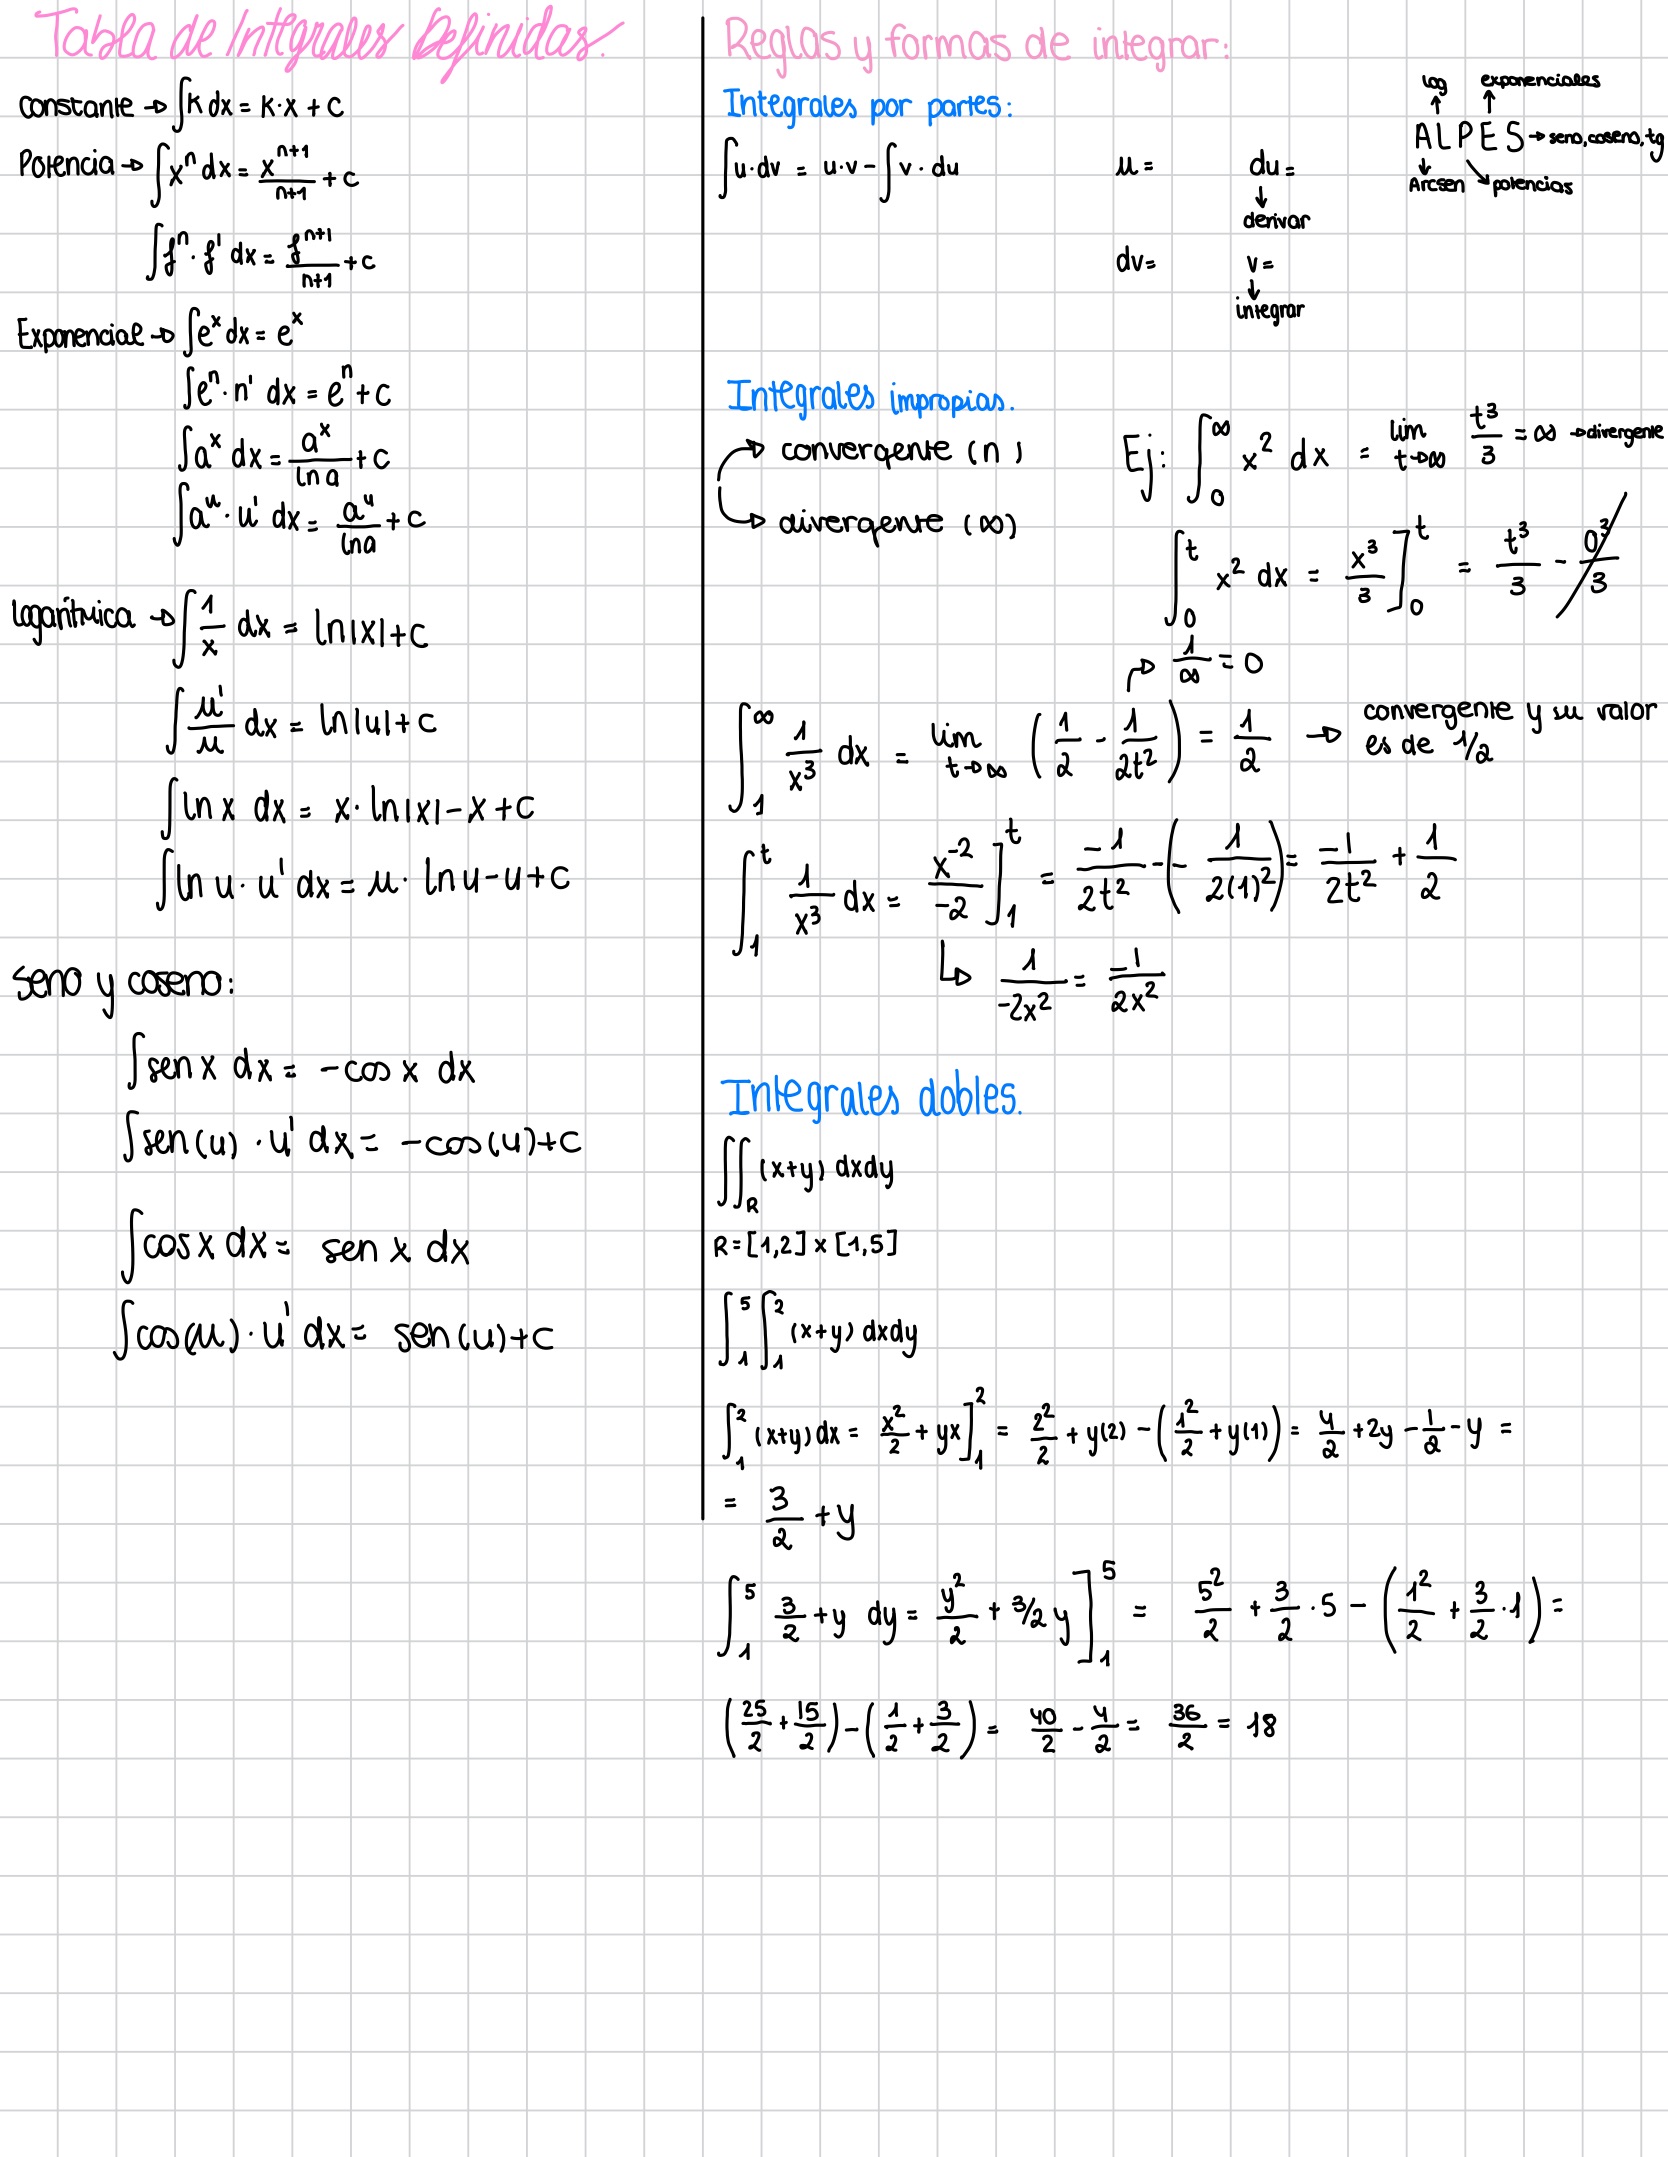 Tabla de Integrales Definidas.
constante → ∫K dx = K·x + c
Potencia → ∫xⁿ dx = xⁿ⁺¹/n+1 + c
∫fⁿ · f' dx = fⁿ⁺¹/n+1 + c
Exponencial → ∫eˣ dx = eˣ
∫eⁿ · n' dx = eⁿ + c
∫aˣ dx = aˣ/ln a + c
∫aᵘ · u' dx = aᵘ/lna + c
logarítmica → ∫1/x dx = ln|x| + c
∫u'/u dx = ln|u| + c
∫ln x dx = x · ln|x| - x + c
∫ln u · u' dx = u · ln u - u + c
seno y coseno:
∫sen x dx = -cos x dx
∫sen(u) · u' dx = -cos(u) + c
∫cos x dx = sen x dx
∫cos(u) · u' dx = sen(u) + c
Reglas y formas de integrar:
Integrales por partes:
∫u·dv = u·v - ∫v · du
u = du =
↓
derivar
dv = v =
↓
integrar
log exponenciales
↑ ↑
ALPES → seno, coseno, tg
↓ ↘
Arcsen potencias
Integrales impropias.
→ convergente (n)
→ divergente (∞)
Ej: ∫₀^∞ x² dx = lim t→∞ t³/3 = ∞ → divergente
∫₀^t x² dx = x³/3 ]₀^t = t³/3 - 0³/3
→ 1/∞ = 0
∫₁^∞ 1/x³ dx = lim t→∞ (1/2 - 1/2t²) = 1/2 → convergente y su valor
es de 1/2
∫₁^t 1/x³ dx = x⁻²/-2 ]₁^t = -1/2t² - (- 1/2(1)²) = -1/2t² + 1/2
↳ 1/-2x² = -1/2x²
Integrales dobles.
∬_R (x+y) dxdy
R = [1,2] x [1,5]
∫₁⁵ ∫₁² (x+y) dxdy
∫₁² (x+y) dx = x²/2 + yx ]₁² = 2²/2 + y(2) - (1²/2 + y(1)) = 4/2 + 2y - 1/2 - y =
= 3/2 + y
∫₁⁵ 3/2 + y dy = y²/2 + 3/2 y ]₁⁵ = 5²/2 + 3/2 · 5 - (1²/2 + 3/2 · 1) =
(25/2 + 15/2) - (1/2 + 3/2) = 40/2 - 4/2 = 36/2 = 18